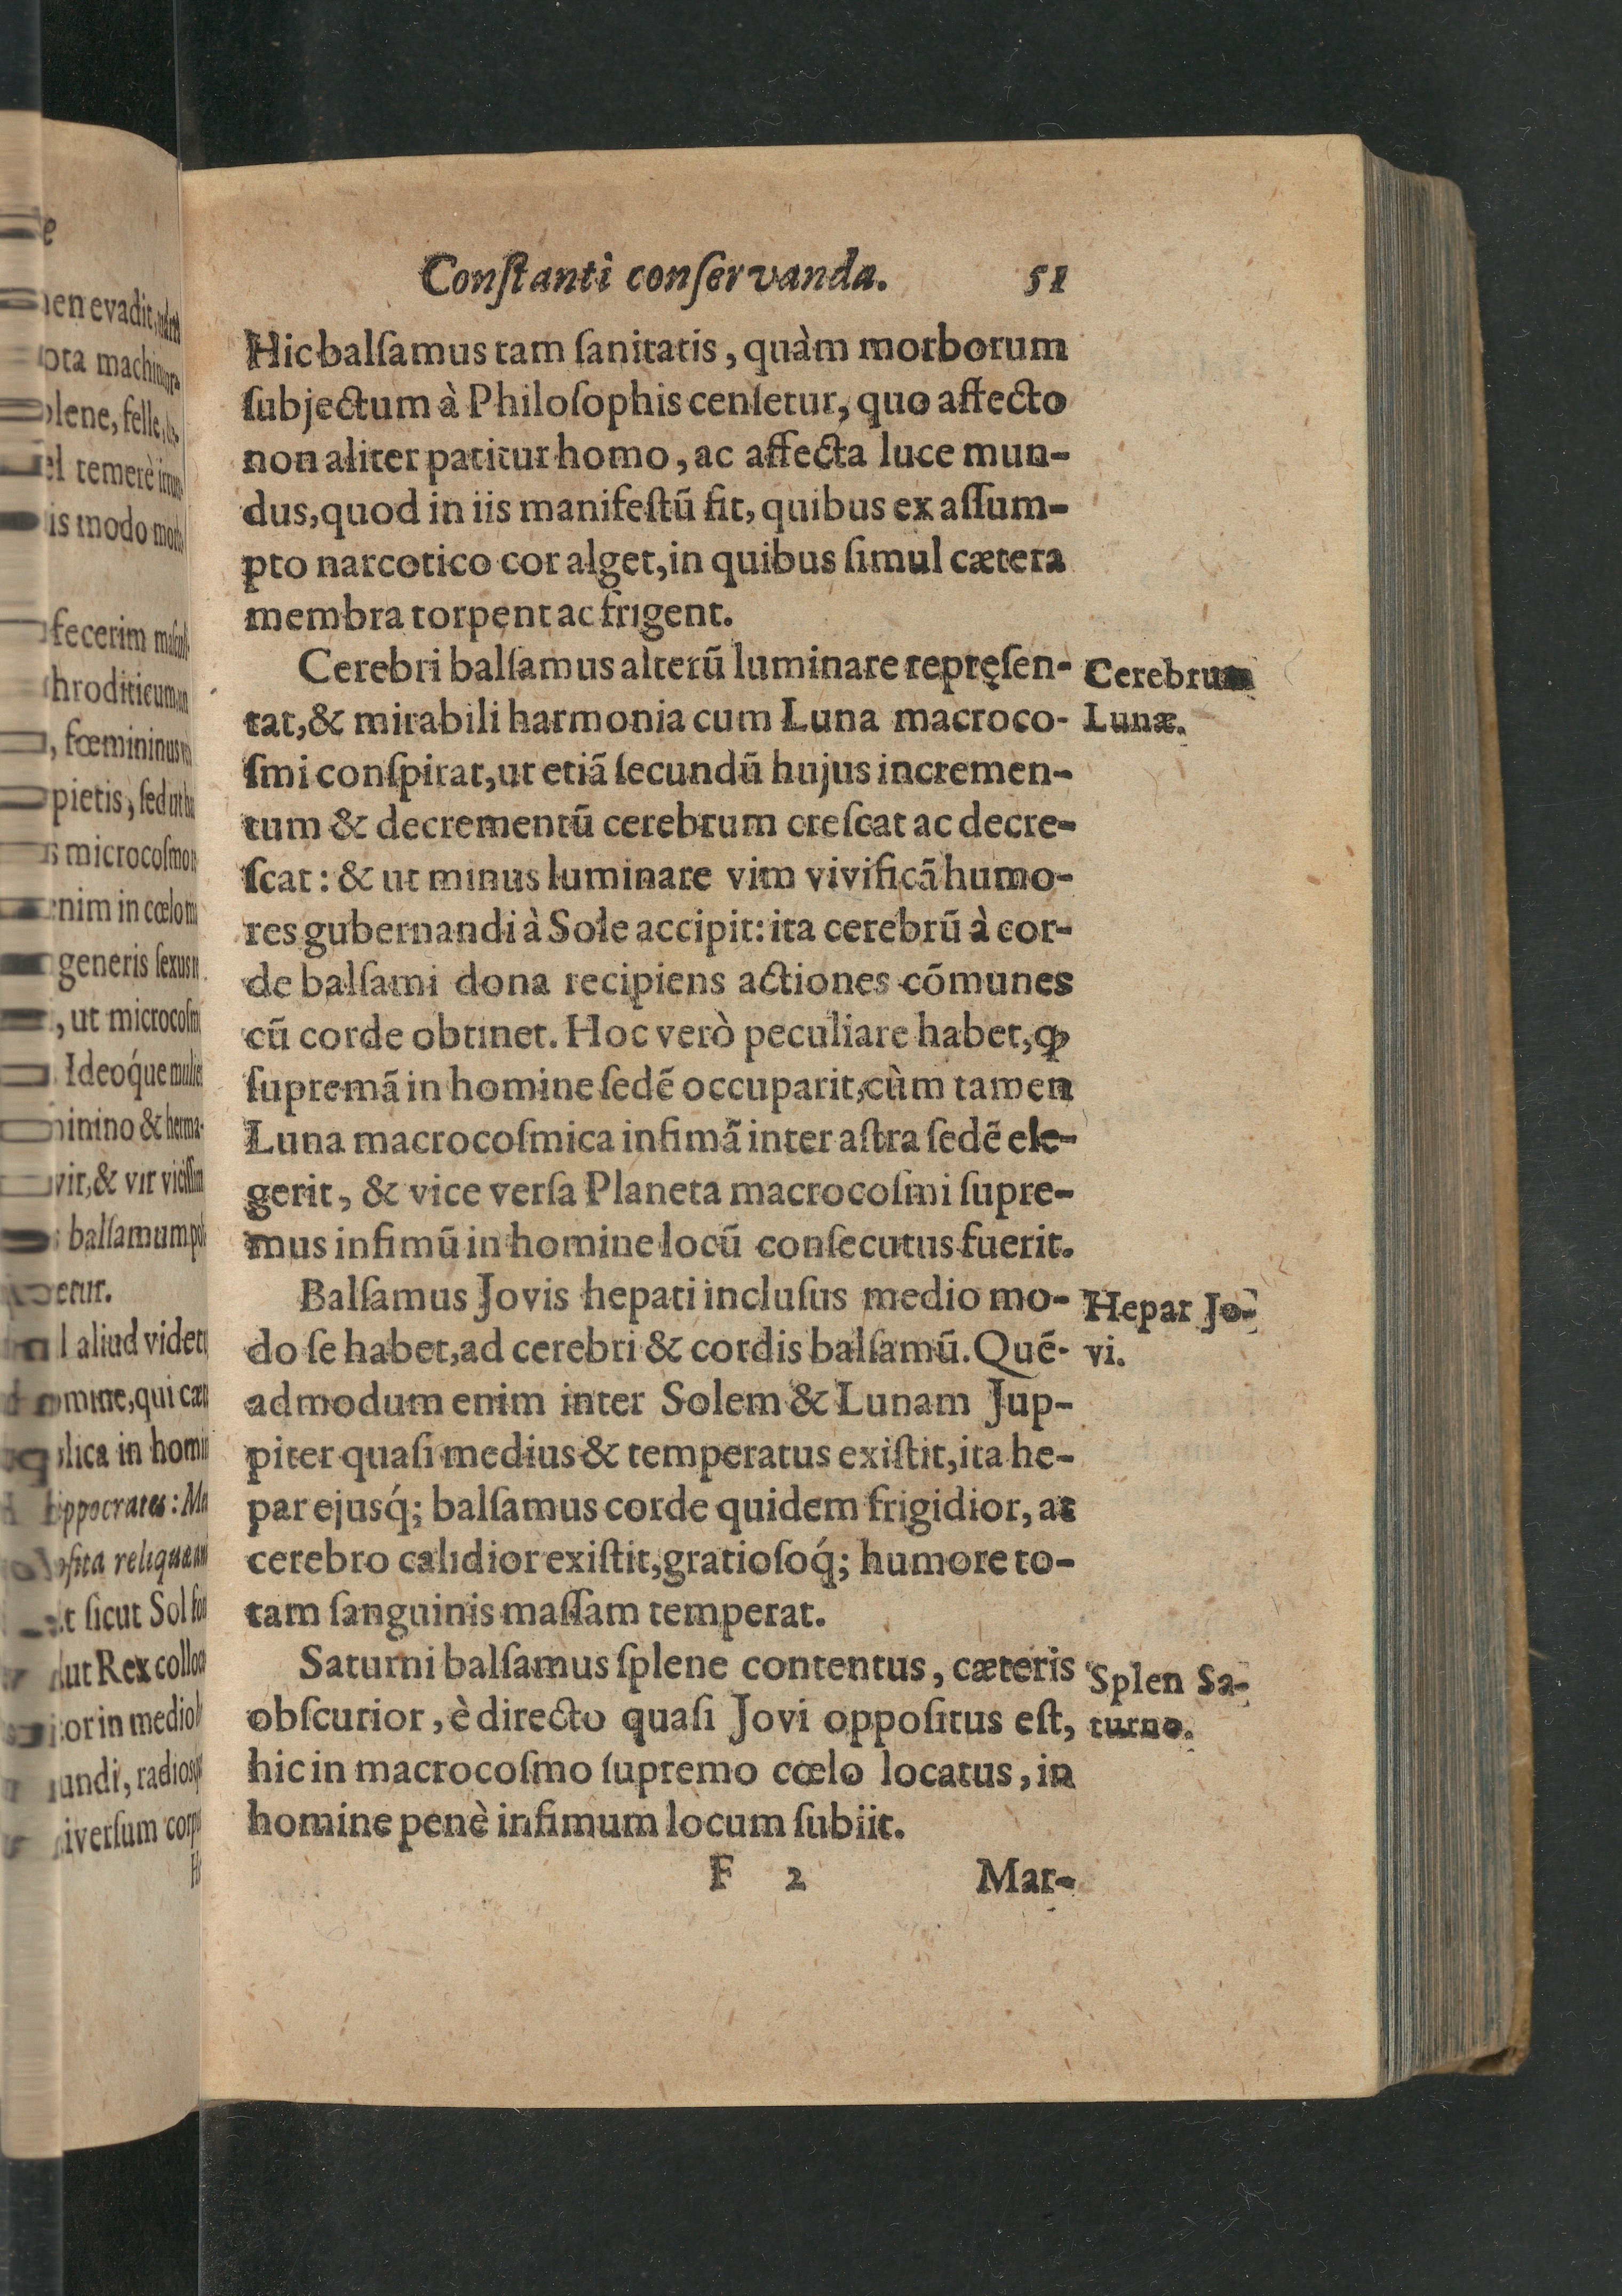 Conſtanti conſervanda. 51
Hic balſamus tam ſanitatis, quàm morborum
ſubjectum à Philoſophis cenſetur, quo affecto
non aliter patitur homo, ac affecta luce mun-
dus, quod in iis manifeſtũ fit, quibus ex aſſum-
pto narcotico cor alget, in quibus ſimul cætera
membra torpent ac frigent.
Cerebri balſamus alterũ luminare repręſen-
tat, & mirabili harmonia cum Luna macroco-
ſmi conſpirat, ut etiã ſecundũ hujus incremen-
tum & decrementũ cerebrum creſcat ac decre-
ſcat: & ut minus luminare vim vivificã humo-
res gubernandi à Sole accipit: ita cerebrũ à cor-
de balſami dona recipiens actiones cõmunes
cũ corde obtinet. Hoc verò peculiare habet, ꝙ
ſupremã in homine ſedẽ occuparit, cùm tamen
Luna macrocoſmica infimã inter aſtra ſedẽ ele-
gerit, & vice verſa Planeta macrocoſmi ſupre-
mus infimũ in homine locũ conſecutus fuerit.
Balſamus Jovis hepati incluſus medio mo-
do ſe habet, ad cerebri & cordis balſamũ. Quẽ-
admodum enim inter Solem & Lunam Jup-
piter quaſi medius & temperatus exiſtit, ita he-
par ejusq́; balſamus corde quidem frigidior, at
cerebro calidior exiſtit, gratioſoq́; humore to-
tam ſanguinis maſſam temperat.
Saturni balſamus ſplene contentus, cæteris
obſcurior, è directo quaſi Jovi oppoſitus eſt,
hic in macrocoſmo ſupremo cœlo locatus, in
homine penè infimum locum ſubiit.
F 2 Mar-
Cerebrum
Lunæ.
Hepar Jo-
vi.
Splen Sa-
turno.
evadit,
machi
lene, felle,
temerè
is modo
fecerim
, fœmininus
pietis, ſed ut
microcoſmo
enim in cœlo
generis ſexus
, ut microcoſm
Ideóque
& herma-
vir, & vir
balſamum
etur.
aliud videt
, qui
in hom
ippocrates:
reliqua
ſicut Sol
ut Rex collo
in medio
undi, radios
iverſum corp